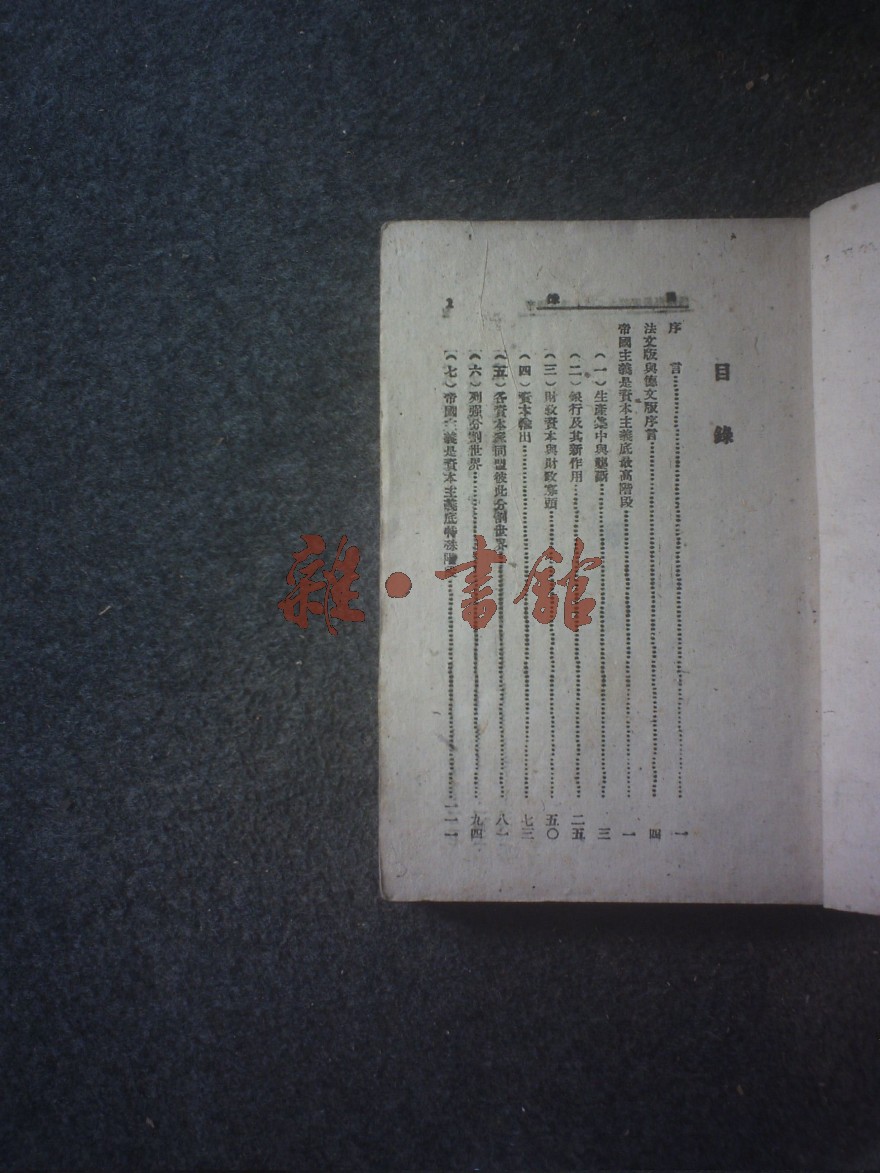 目錄
序言 一
法文版與德文版序言 四
帝國主義是資本主義底最高階段 一
(一)生產集中與壟斷 三
(二)銀行及其新作用 二五
(三)財政資本與財政寡頭 五〇
(四)資本輸出 七三
(五)各資本家同盟彼此分割世界 八一
(六)列强分割世界 九四
(七)帝國主義是資本主義底特殊階 一一一
雜·書館